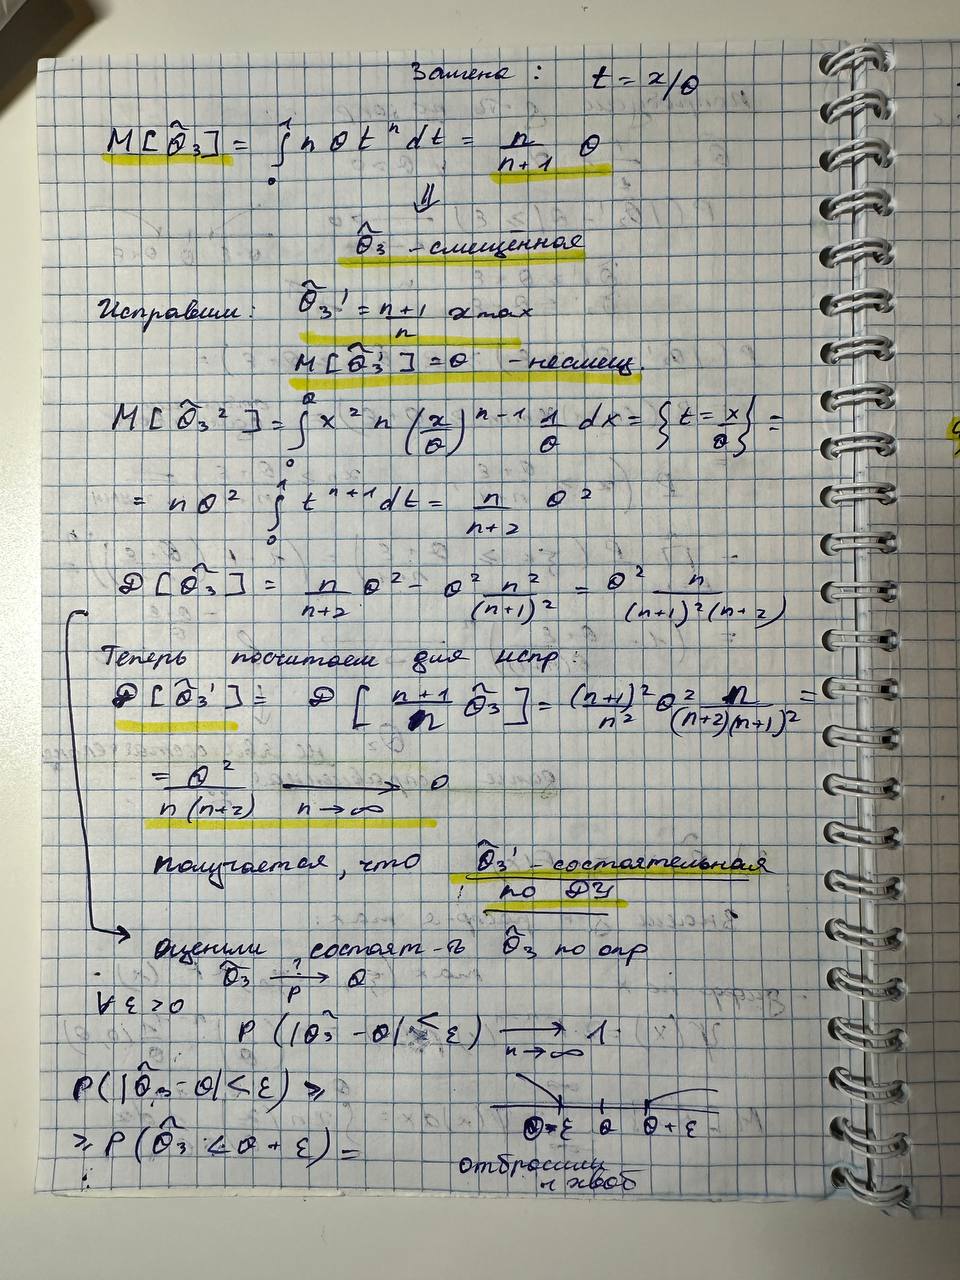 Замена : t = x/θ
M[θ̂₃] = ∫₀¹ n θ tⁿ dt = n/(n+1) θ
⇓
θ̂₃ - смещённая
Исправим: θ̂₃' = (n+1)/n x max
M[θ̂₃'] = θ - несмещ.
M[θ̂₃²] = ∫₀^θ x² n (x/θ)^(n-1) 1/θ dx = {t = x/θ} =
= n θ² ∫₀¹ t^(n+1) dt = n/(n+2) θ²
D[θ̂₃] = n/(n+2) θ² - θ² n²/(n+1)² = θ² n/((n+1)²(n+2))
Теперь посчитаем для испр:
D[θ̂₃'] = D[(n+1)/n θ̂₃] = (n+1)²/n² θ² n/((n+2)(n+1)²) =
= θ²/(n(n+2)) ⟶ 0
n→∞
получается, что θ̂₃' - состоятельная
по ДУ
оценили состоят-ть θ̂₃ по опр
θ̂₃ ⟶ θ
?
P
∀ ε > 0
P(|θ̂₃ - θ| < ε) ⟶ 1
n→∞
P(|θ̂₃ - θ| < ε) ≥
θ-ε θ θ+ε
≥ P(θ̂₃ < θ + ε) =
отбросили
1 хвост